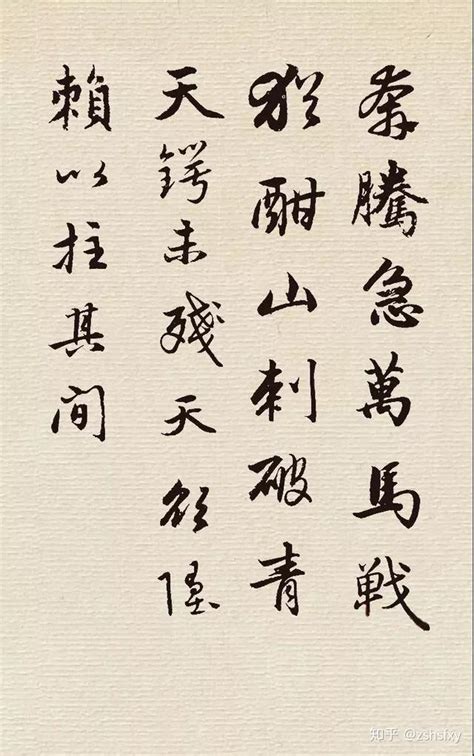 奔騰急萬馬戰
猶酣山刺破青
天鍔未殘天欲墮
賴以拄其间
知乎 @zshsfxy